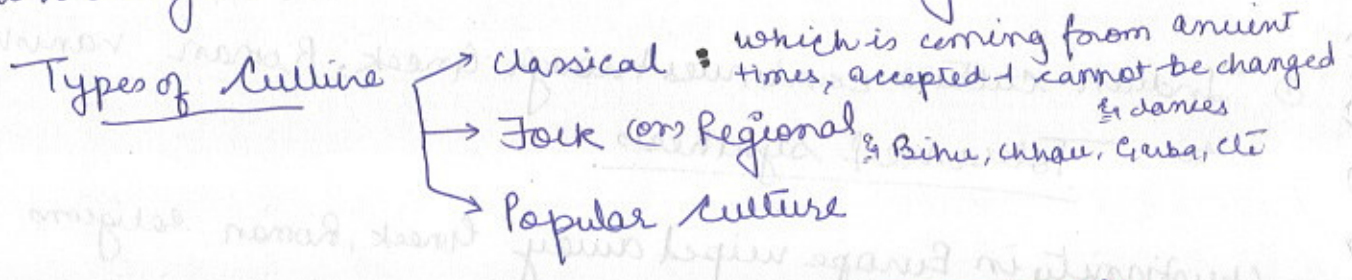 Types of Culture
Classical : which is coming from ancient
times, accepted & cannot be changed
Eg dances
Folk (or) Regional Eg Bihu, Chhau, Garba, etc
Popular Culture